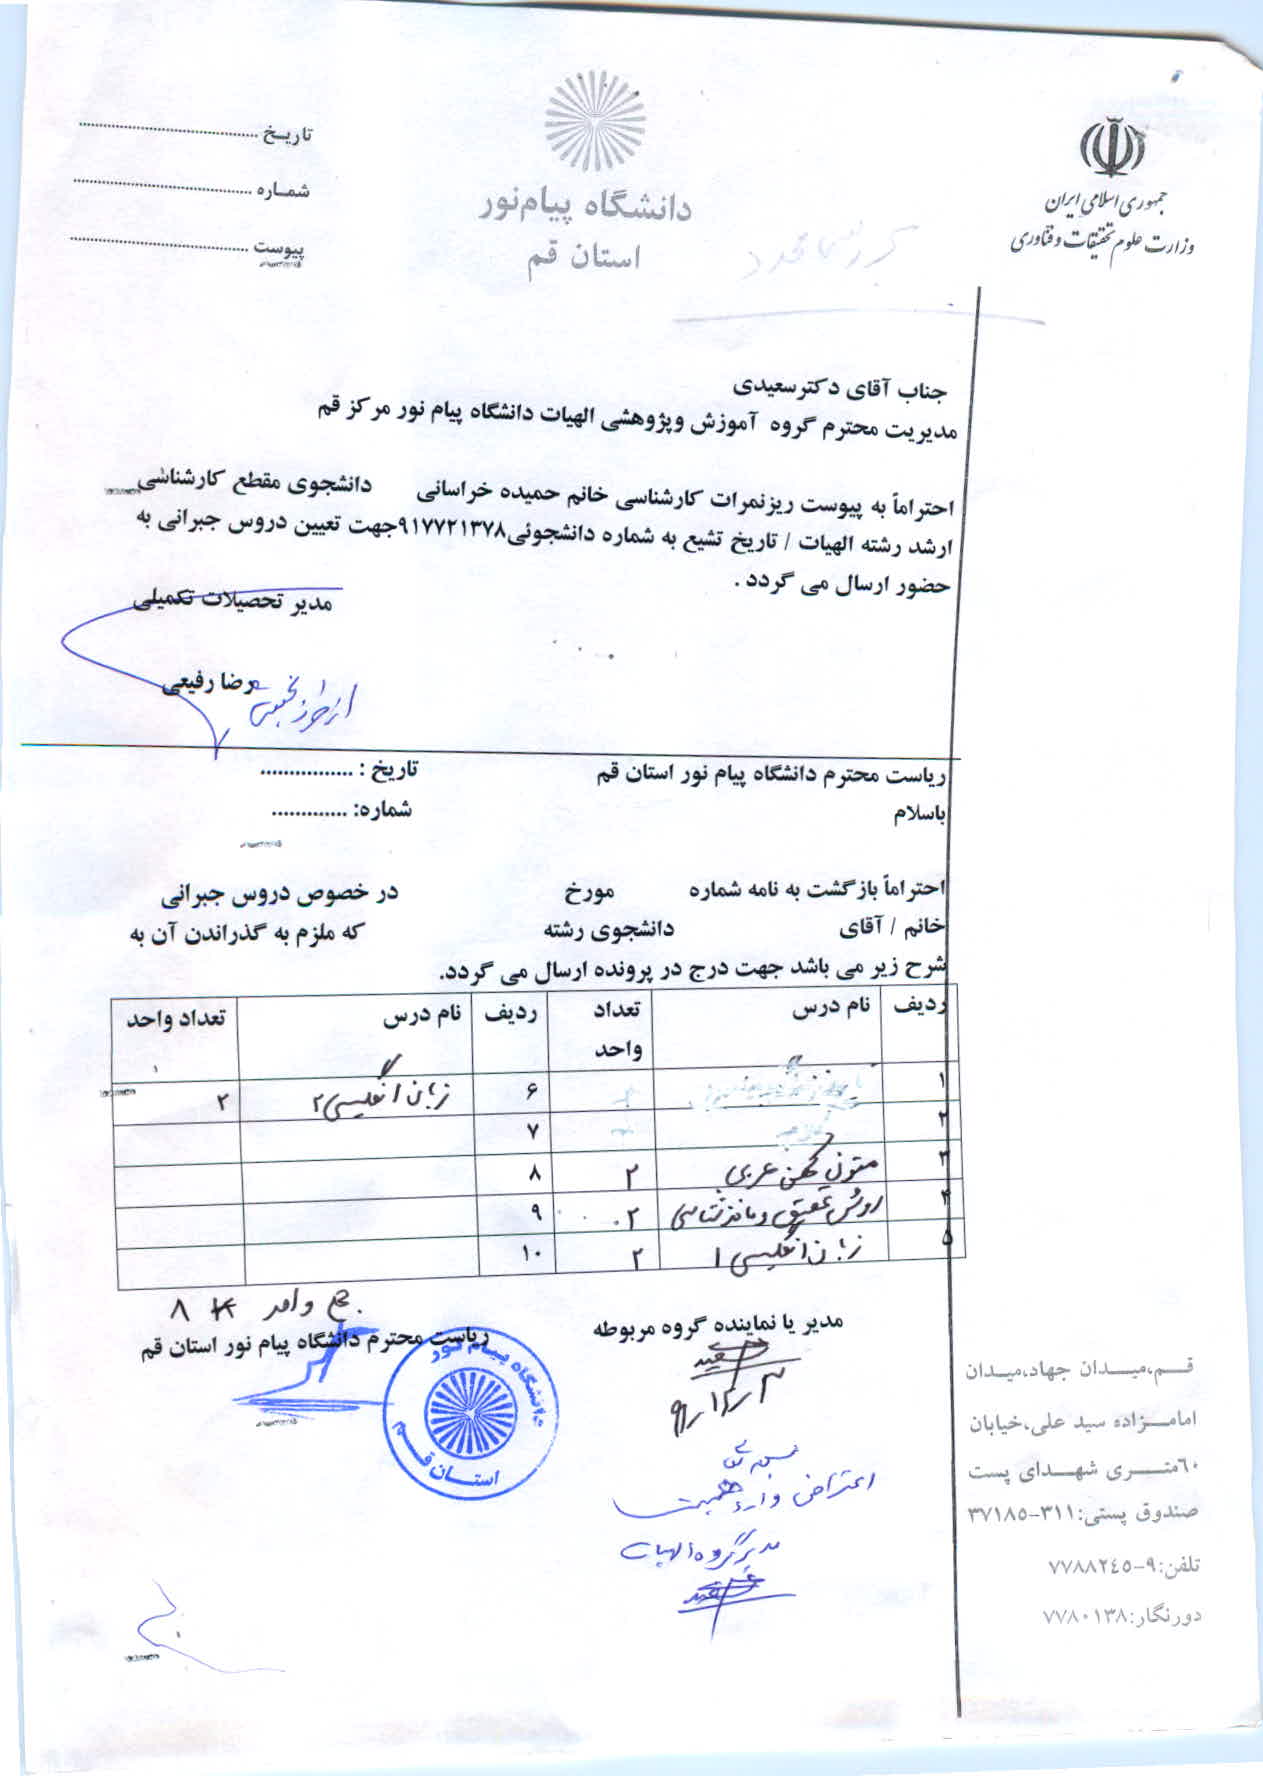 جمهوری اسلامی ایران
وزارت علوم تحقیقات و فناوری
دانشگاه پیام‌نور
استان قم
تاریـخ ..........................................
شمـاره ..........................................
پیوست ..........................................
جناب آقای دکترسعیدی
مدیریت محترم گروه آموزش وپژوهشی الهیات دانشگاه پیام نور مرکز قم
احتراماً به پیوست ریزنمرات کارشناسی خانم حمیده خراسانی دانشجوی مقطع کارشناسی
ارشد رشته الهیات / تاریخ تشیع به شماره دانشجوئی۹۱۷۷۲۱۳۷۸جهت تعیین دروس جبرانی به
حضور ارسال می گردد .
مدیر تحصیلات تکمیلی
رضا رفیعی
ریاست محترم دانشگاه پیام نور استان قم
تاریخ : ................
باسلام
شماره: .............
احتراماً بازگشت به نامه شماره مورخ در خصوص دروس جبرانی
خانم / آقای دانشجوی رشته که ملزم به گذراندن آن به
شرح زیر می باشد جهت درج در پرونده ارسال می گردد.
ردیف نام درس تعداد واحد ردیف نام درس تعداد واحد
۱ ۶ زبان انگلیسی ۲ ۲
۲ ۷
۳ متون کهن عربی ۲ ۸
۴ روش تحقیق و ماخذشناسی ۲ ۹
۵ زبان انگلیسی ۱ ۲ ۱۰
جمع واحد ۸
مدیر یا نماینده گروه مربوطه
ریاست محترم دانشگاه پیام نور استان قم
دانشگاه پیام نور
استان قم
۹۱/۱۲/۳
اعتراض وارد
مدیر گروه الهیات
قـم،میـدان جهاد،میـدان
امامـزاده سید علی،خیابان
٦٠متـری شهـدای پست
صندوق پستی:۳۱۱-۳۷۱۸۵
تلفن:۹-۷۷۸۸۲٤۵
دورنگار:۷۷۸۰۱۳۸